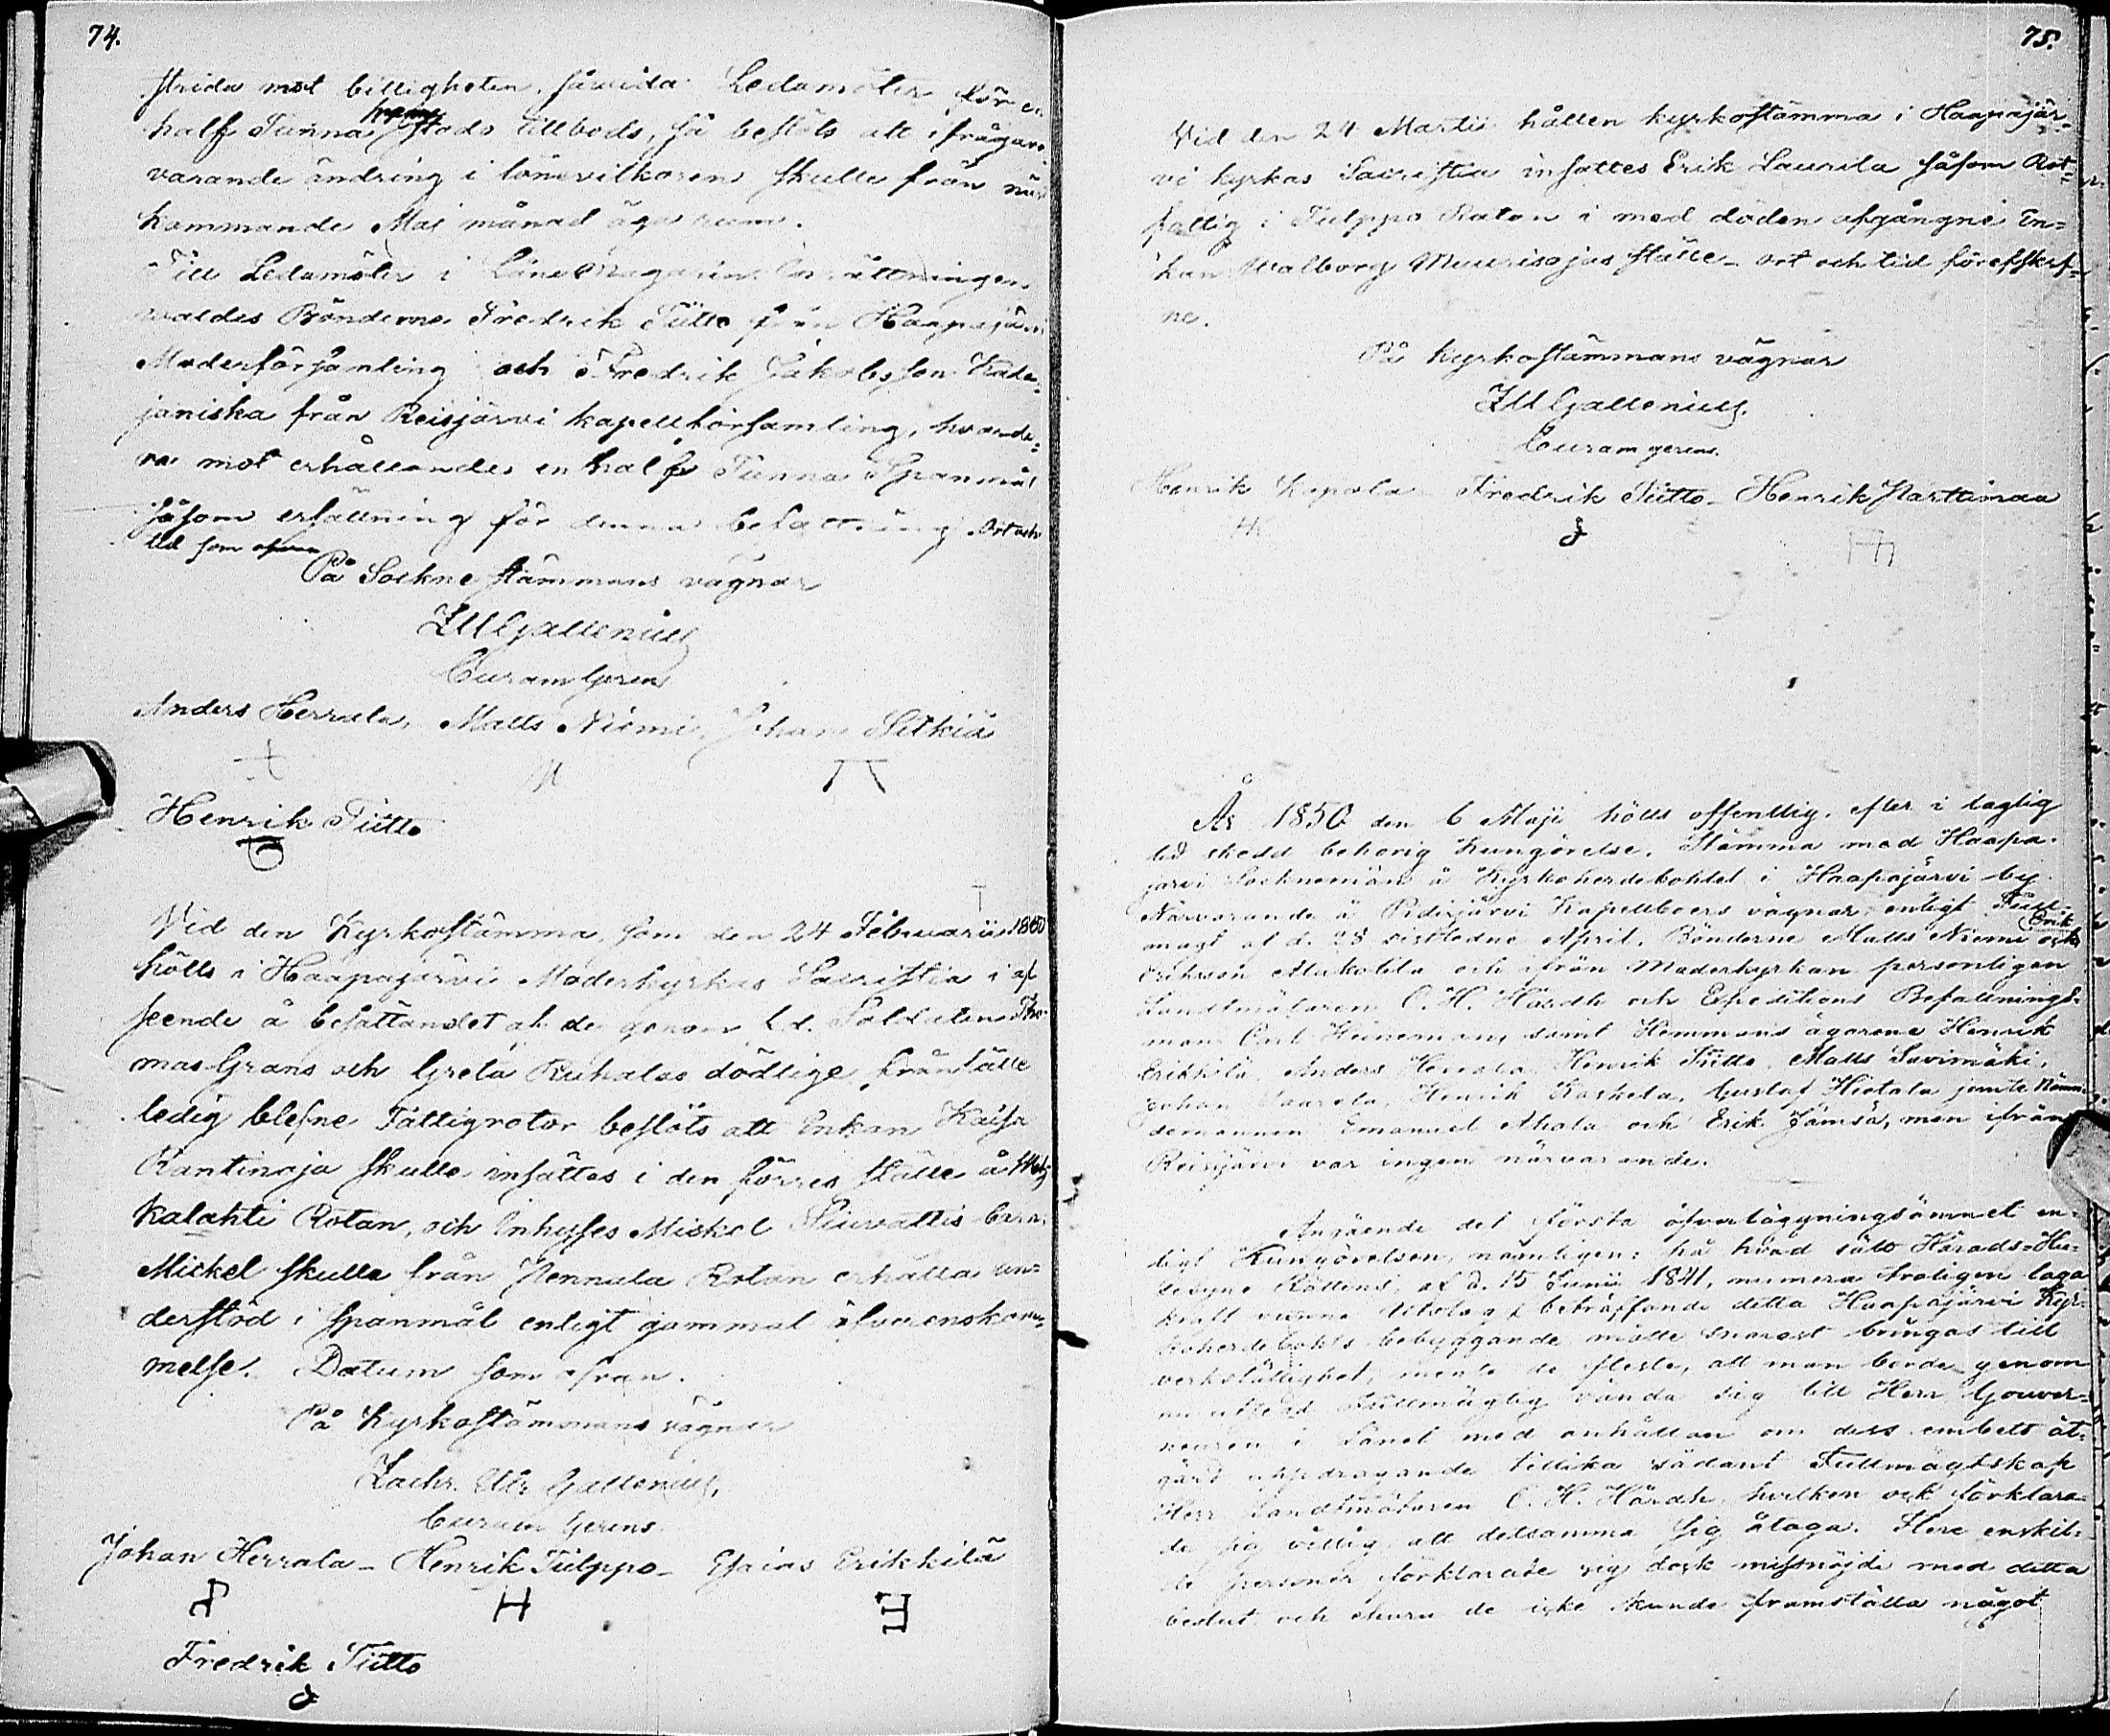 74.
strida mot billigheten, såvida Ledamöter för en
half Tunna stods tillbods, så beslöts att ifrågava-
varande ändring i lönevilkoren skulle från näst
kommande Maj månad äga rum.
Till Ledamöter i Låne Magasins Inrättningen
valdes Bönderne Fredrik Tütto från Haapajärvi
Moderförsamling och Fredrik Jakobsson Kada-
janiska från Reisjärvi kapellförsamling, hvarde-
ra mot erhållande en half Tunna Spanmål
såsom ersättning för denna befattning. Ort och
tid som ofvan
På Sockne stämmans vägnar
ZM Gallenius
Curam Gerens
Anders Herrala, Matts Niemi, Johan Sitkiä
Henrik Tütto
Vid den Kyrkostämma, som den 24 Februarii 1850
hölls i Haapajärvi Moderkyrkas Sacristia i af
seende å besättandet af de genom f.d. Soldaten Tho-
mas Grans och Greta Ruhalas dödlige frånfälle
ledig blefne Fattigrotor beslöts att Enkan Kaisa
Rantinoja skulle insättas i den förres ställe å
Kalahti Rotan, och Inhyses Mickel
Mickel skulle från Nennula Rotan erhålla un-
derstöd i spanmål enligt gammal öfverenskom-
melse. Datum som ofvan.
På Kyrkostämmans vägnar
Zachr. Mts Gallenius,
Curam Gerens
Johan Herrala - Henrik Tülppo - Esaias Erikkilä
H
E
Fredrik Tütto
75.
Vid den 24 Martii hållen kyrkostämma i Haapajär-
vi kyrkas Sacristia insattes Erik Laurila såsom Rot-
fattig i Tulppo Rotan i med döden afgångne En-
kan Walborg Muurisojas ställe - ort och tid förefskrf-
ne.
På kyrkostämmans vägnar
ZM Gallenius.
Curam gerens.
Henrik Kepola - Fredrik Tütto - Henrik Narttimaa
År 1850 den 6 Maji hölls offentlig, efter i laglig
tid skedd behörig Kungörelse, Stämma med Haapa-
järvi Socknemän å Kyrkoherdebohlet i Haapajärvi by.
Närvarande å Pidisjärvi Kapellboers vägnar, enligt Full-
magt af d. 28 sistledne April, Bönderne Matts Niemi och Erik
Eriksson Alakotila och ifrån Moderkyrkan personligen
Landtmätaren C. H. Hårdh och Expeditions Befallnings-
man Carl Heineman, samt Hemmans ägarena Henrik
Erikkilä, Anders Herrala, Henrik Tütto, Matts Savimäki,
Johan Laurola, Henrik Koskela, Gustaf Hietala jemte Nämn-
demannen Emanuel Ahola och Erik Jämsä, men ifrån
Reisjärvi var ingen närvarande.
Angående det första öfverläggningsämnet en-
ligt Kungörelsen, nämligen: på hvad sätt Härads-Hu-
sesyns Rättens, af d. 15 Junii 1841, numera troligen laga
kraft vunne Utslag, beträffande detta Haapajärvi Kyr-
koherdebohls bebyggande måtte snarast bringas till
verkställighet, mente de fleste, att man borde genom
en utsedd Fullmägtig vända sig till Herr Gouver-
neuren i Länet med anhållan om dess embets åt-
gärd uppdragande tillika sådant Fullmägtskap
Herr Landtmätaren C. H. Hårdh, hvilken ock förklara-
de sig villig att detsamma sig åtaga. Flere enskil-
de personer förklarade sig dock missnöjde med detta
beslut och ehuru de icke kunde framställa något